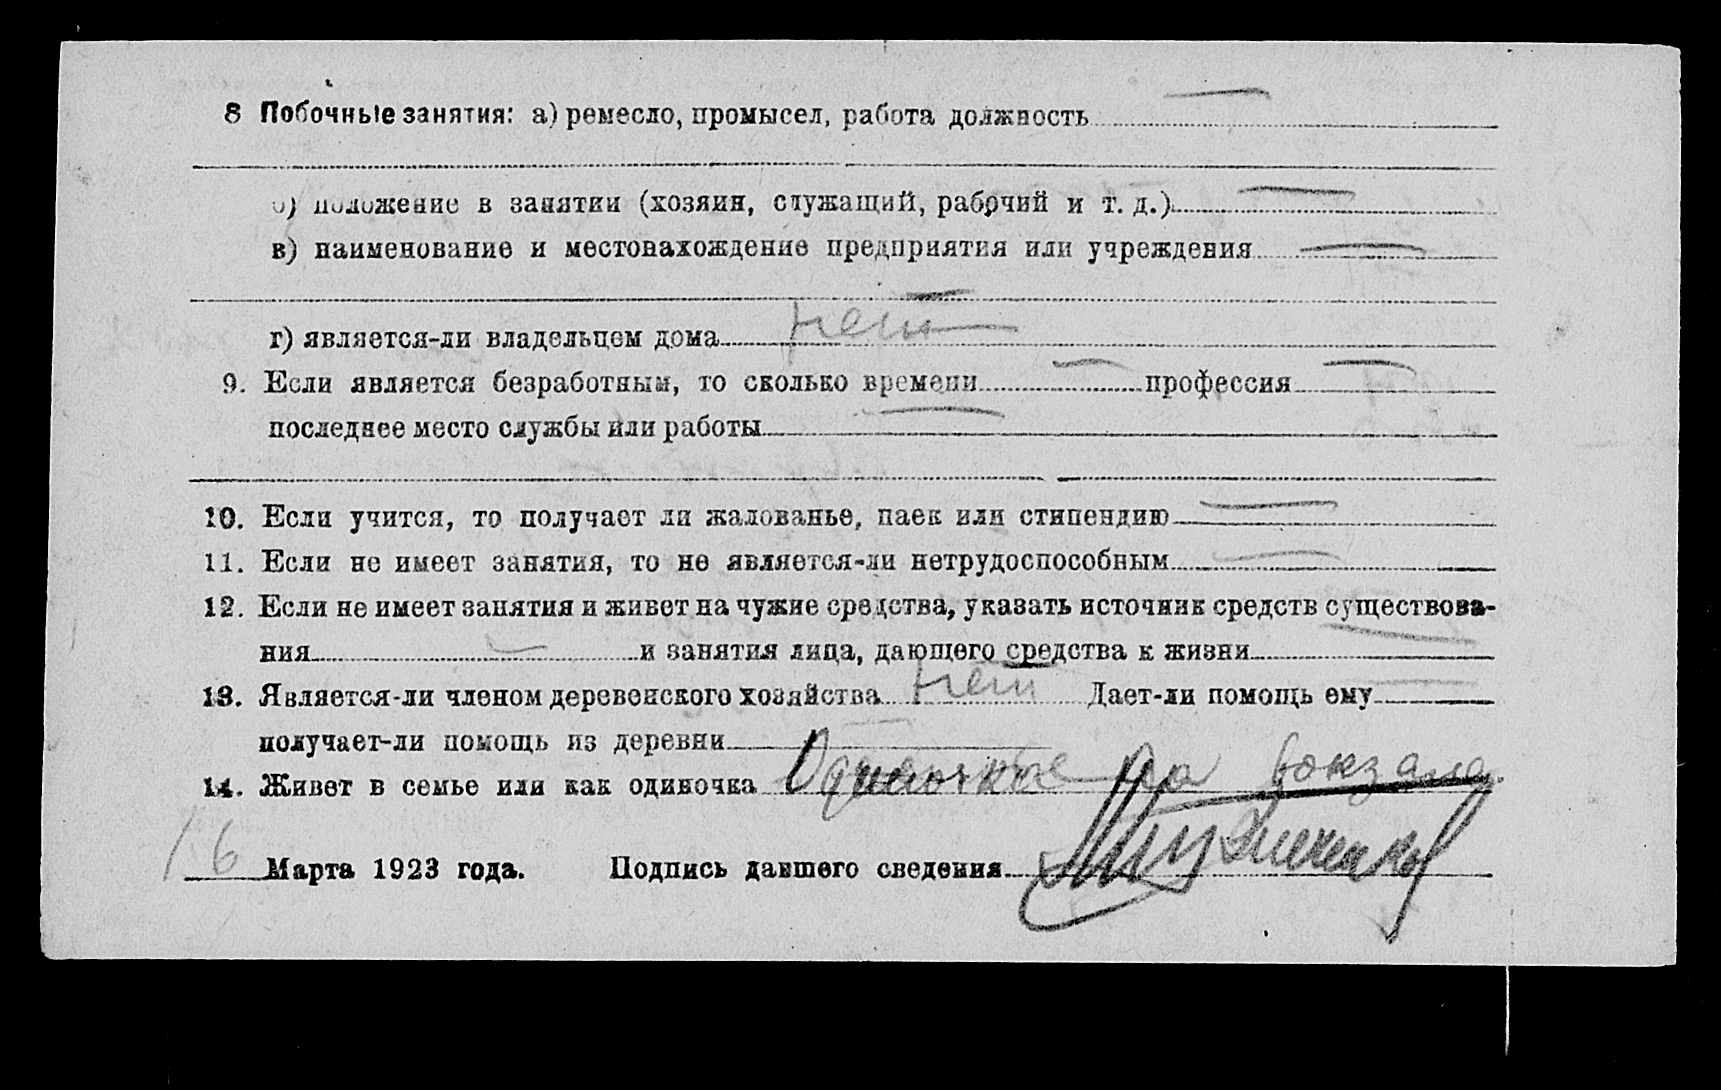 8 Побочные занятия: а) ремесло, промысел, работа должность —
б) положение в занятии (хозяин, служащий, рабочий и т. д.) —
в) наименование и местонахождение предприятия или учреждения —
—
г) является-ли владельцем дома нет
9. Если является безработным, то сколько времени — профессия —
последнее место службы или работы —
10. Если учится, то получает ли жалованье, паек или стипендию —
11. Если не имеет занятия, то не является-ли нетрудоспособным —
12. Если не имеет занятия и живет на чужие средства, указать источник средств существова-
ния — и занятия лица, дающего средства к жизни —
13. Является-ли членом деревенского хозяйства нет Дает-ли помощь ему —
получает-ли помощь из деревни —
14. Живет в семье или как одиночка вокзала
16 Марта 1923 года. Подпись давшего сведения